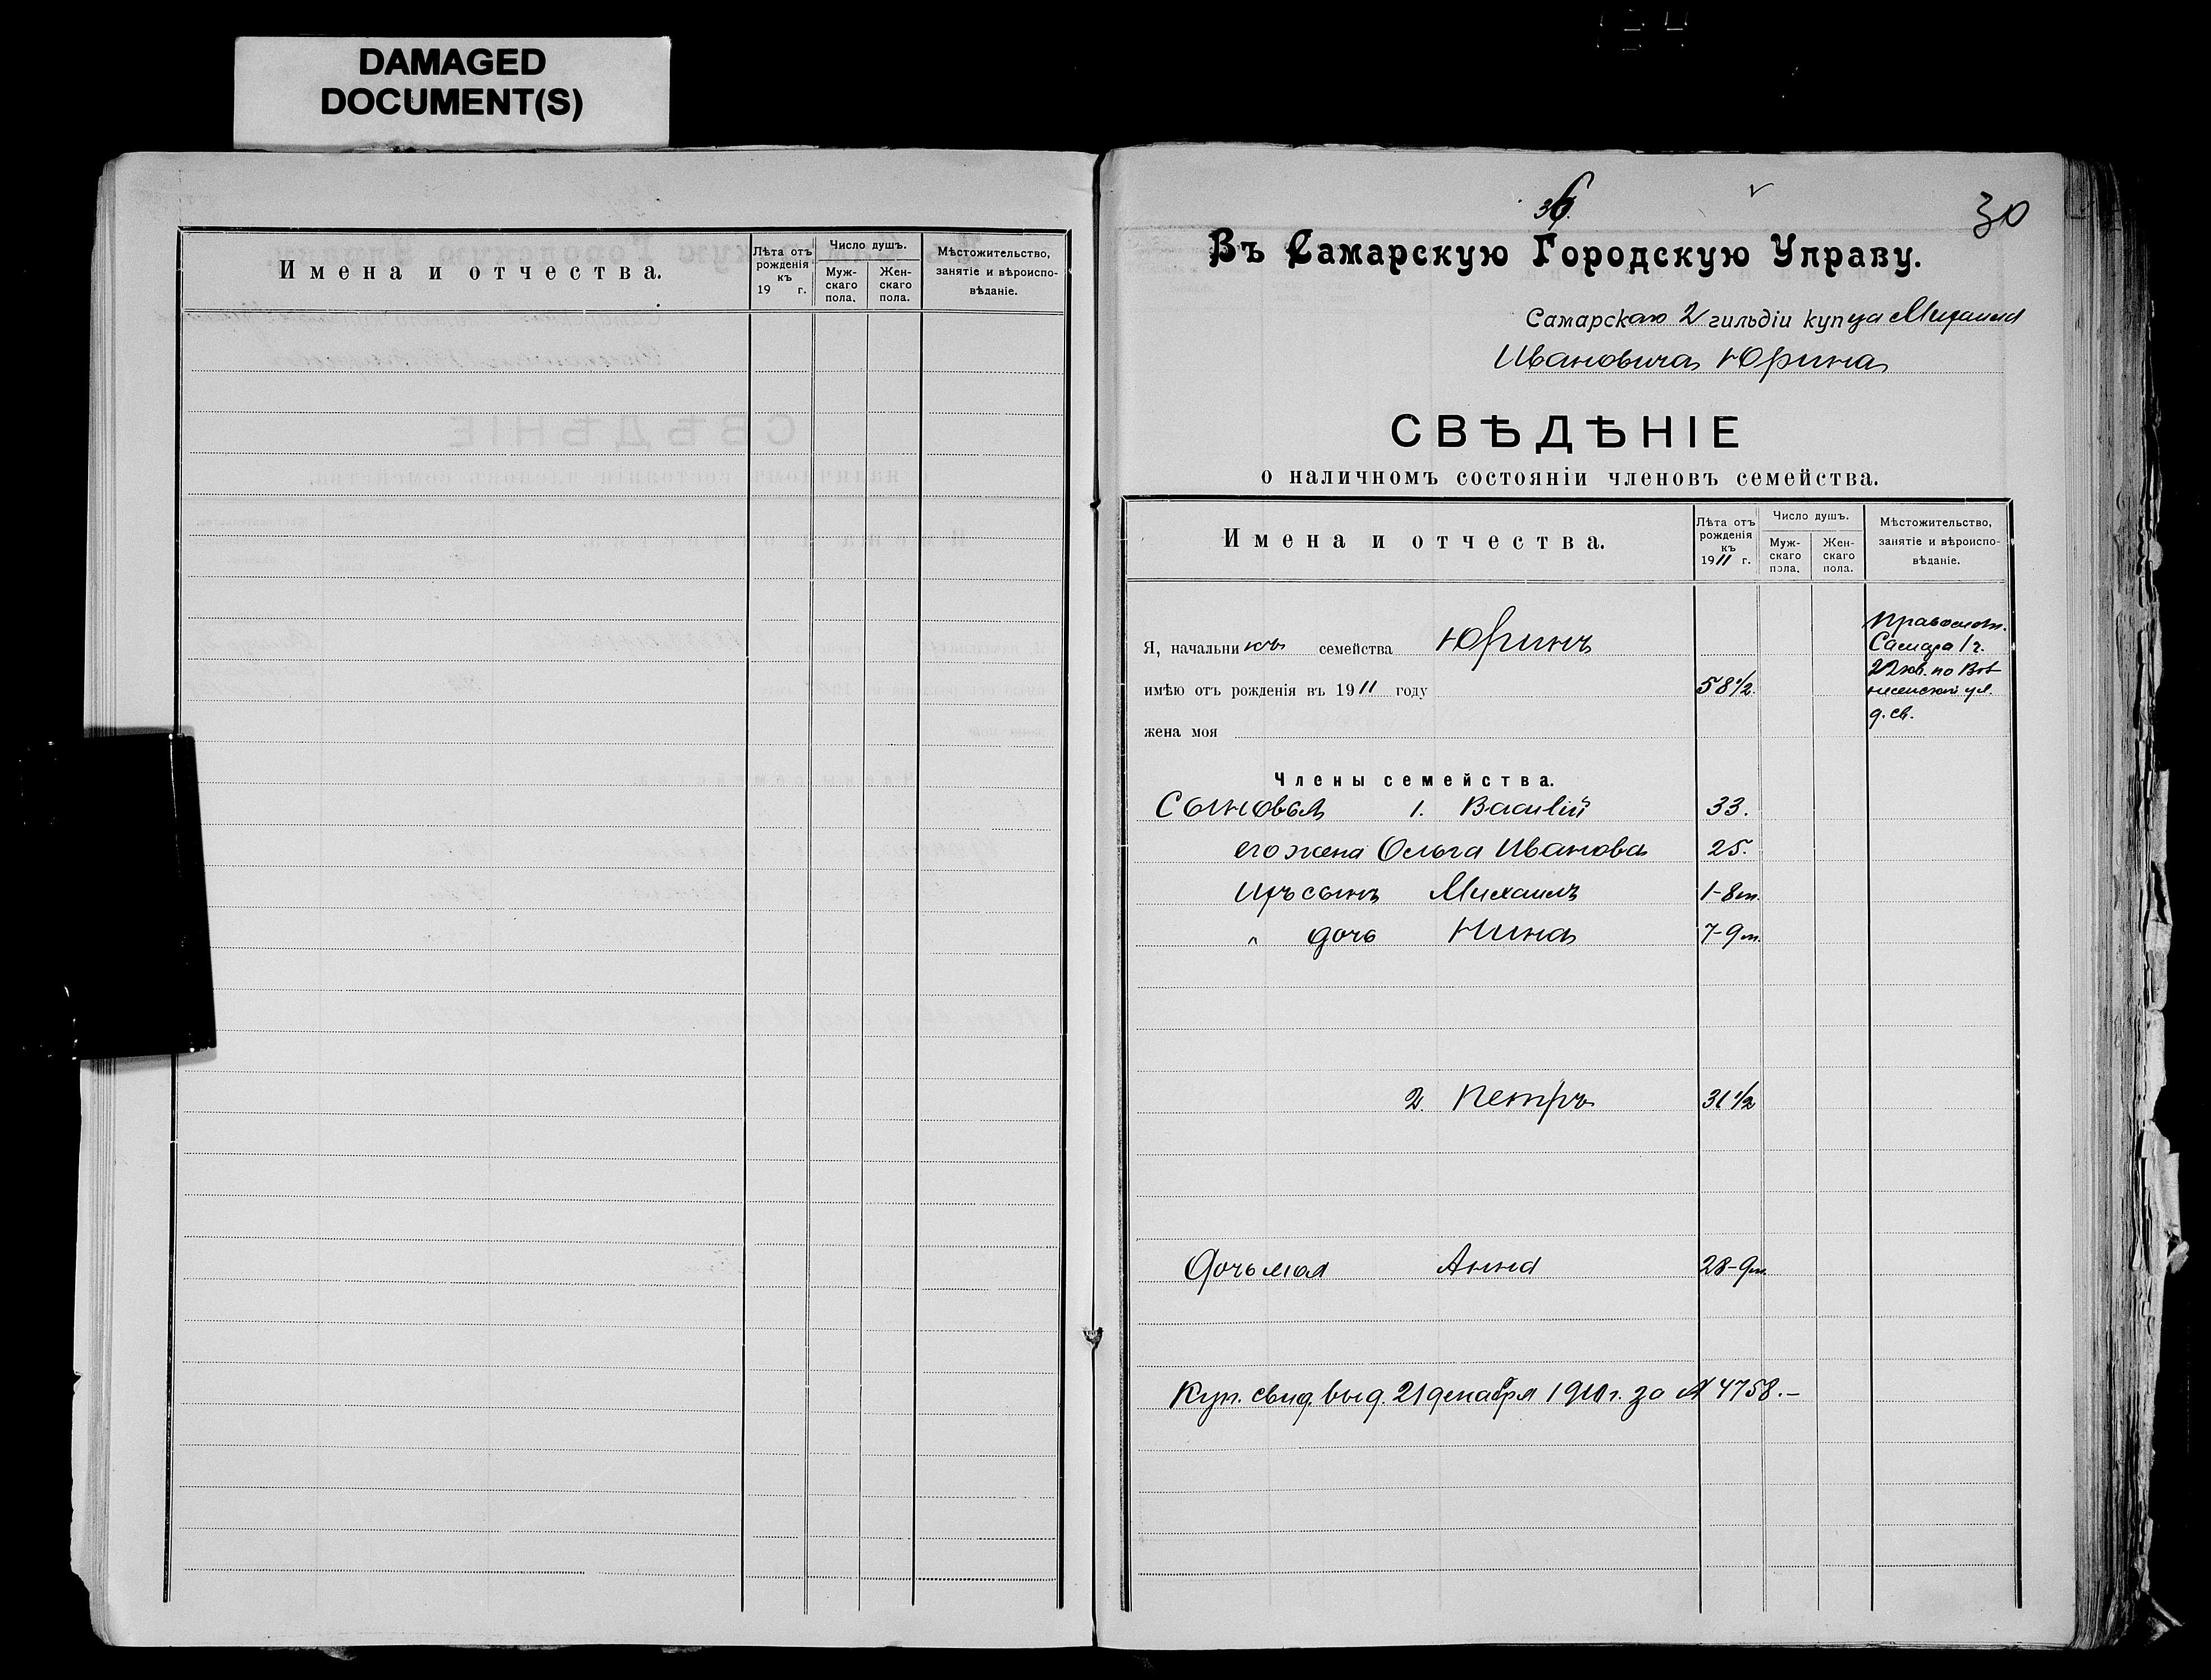 DAMAGED
DOCUMENT(S)
Имена и отчества.
Лѣта отъ рожденія къ 19 г.
Число душъ.
Мужскаго пола.
Женскаго пола.
Мѣстожительство, занятіе и вѣроисповѣданіе.
36.
30
Въ Самарскую Городскую Управу.
Самарскаго 2 гильдіи купца Михаила
Ивановича Юрина
СВѢДѢНІЕ
о наличномъ состояніи членовъ семейства.
Имена и отчества.
Лѣта отъ рожденія къ 1911 г.
Число душъ.
Мужскаго пола.
Женскаго пола.
Мѣстожительство, занятіе и вѣроисповѣданіе.
Я, начальникъ семейства Юринъ
имѣю отъ рожденія въ 1911 году 58 1/2.
жена моя
Православн.
Самара 1 ч.
22 кв. по Воз-
несенской ул.
д. св.
Члены семейства.
Сыновья 1. Василій 33.
его жена Ольга Иванова 25.
Ихъ сынъ Михаилъ 1-8 м.
" дочь Нина 7-9 м.
2. Петръ 31 1/2
Дочь моя Анна 28-9 м.
Куп. свид. выд. 21 декабря 1910 г. за № 4758.-